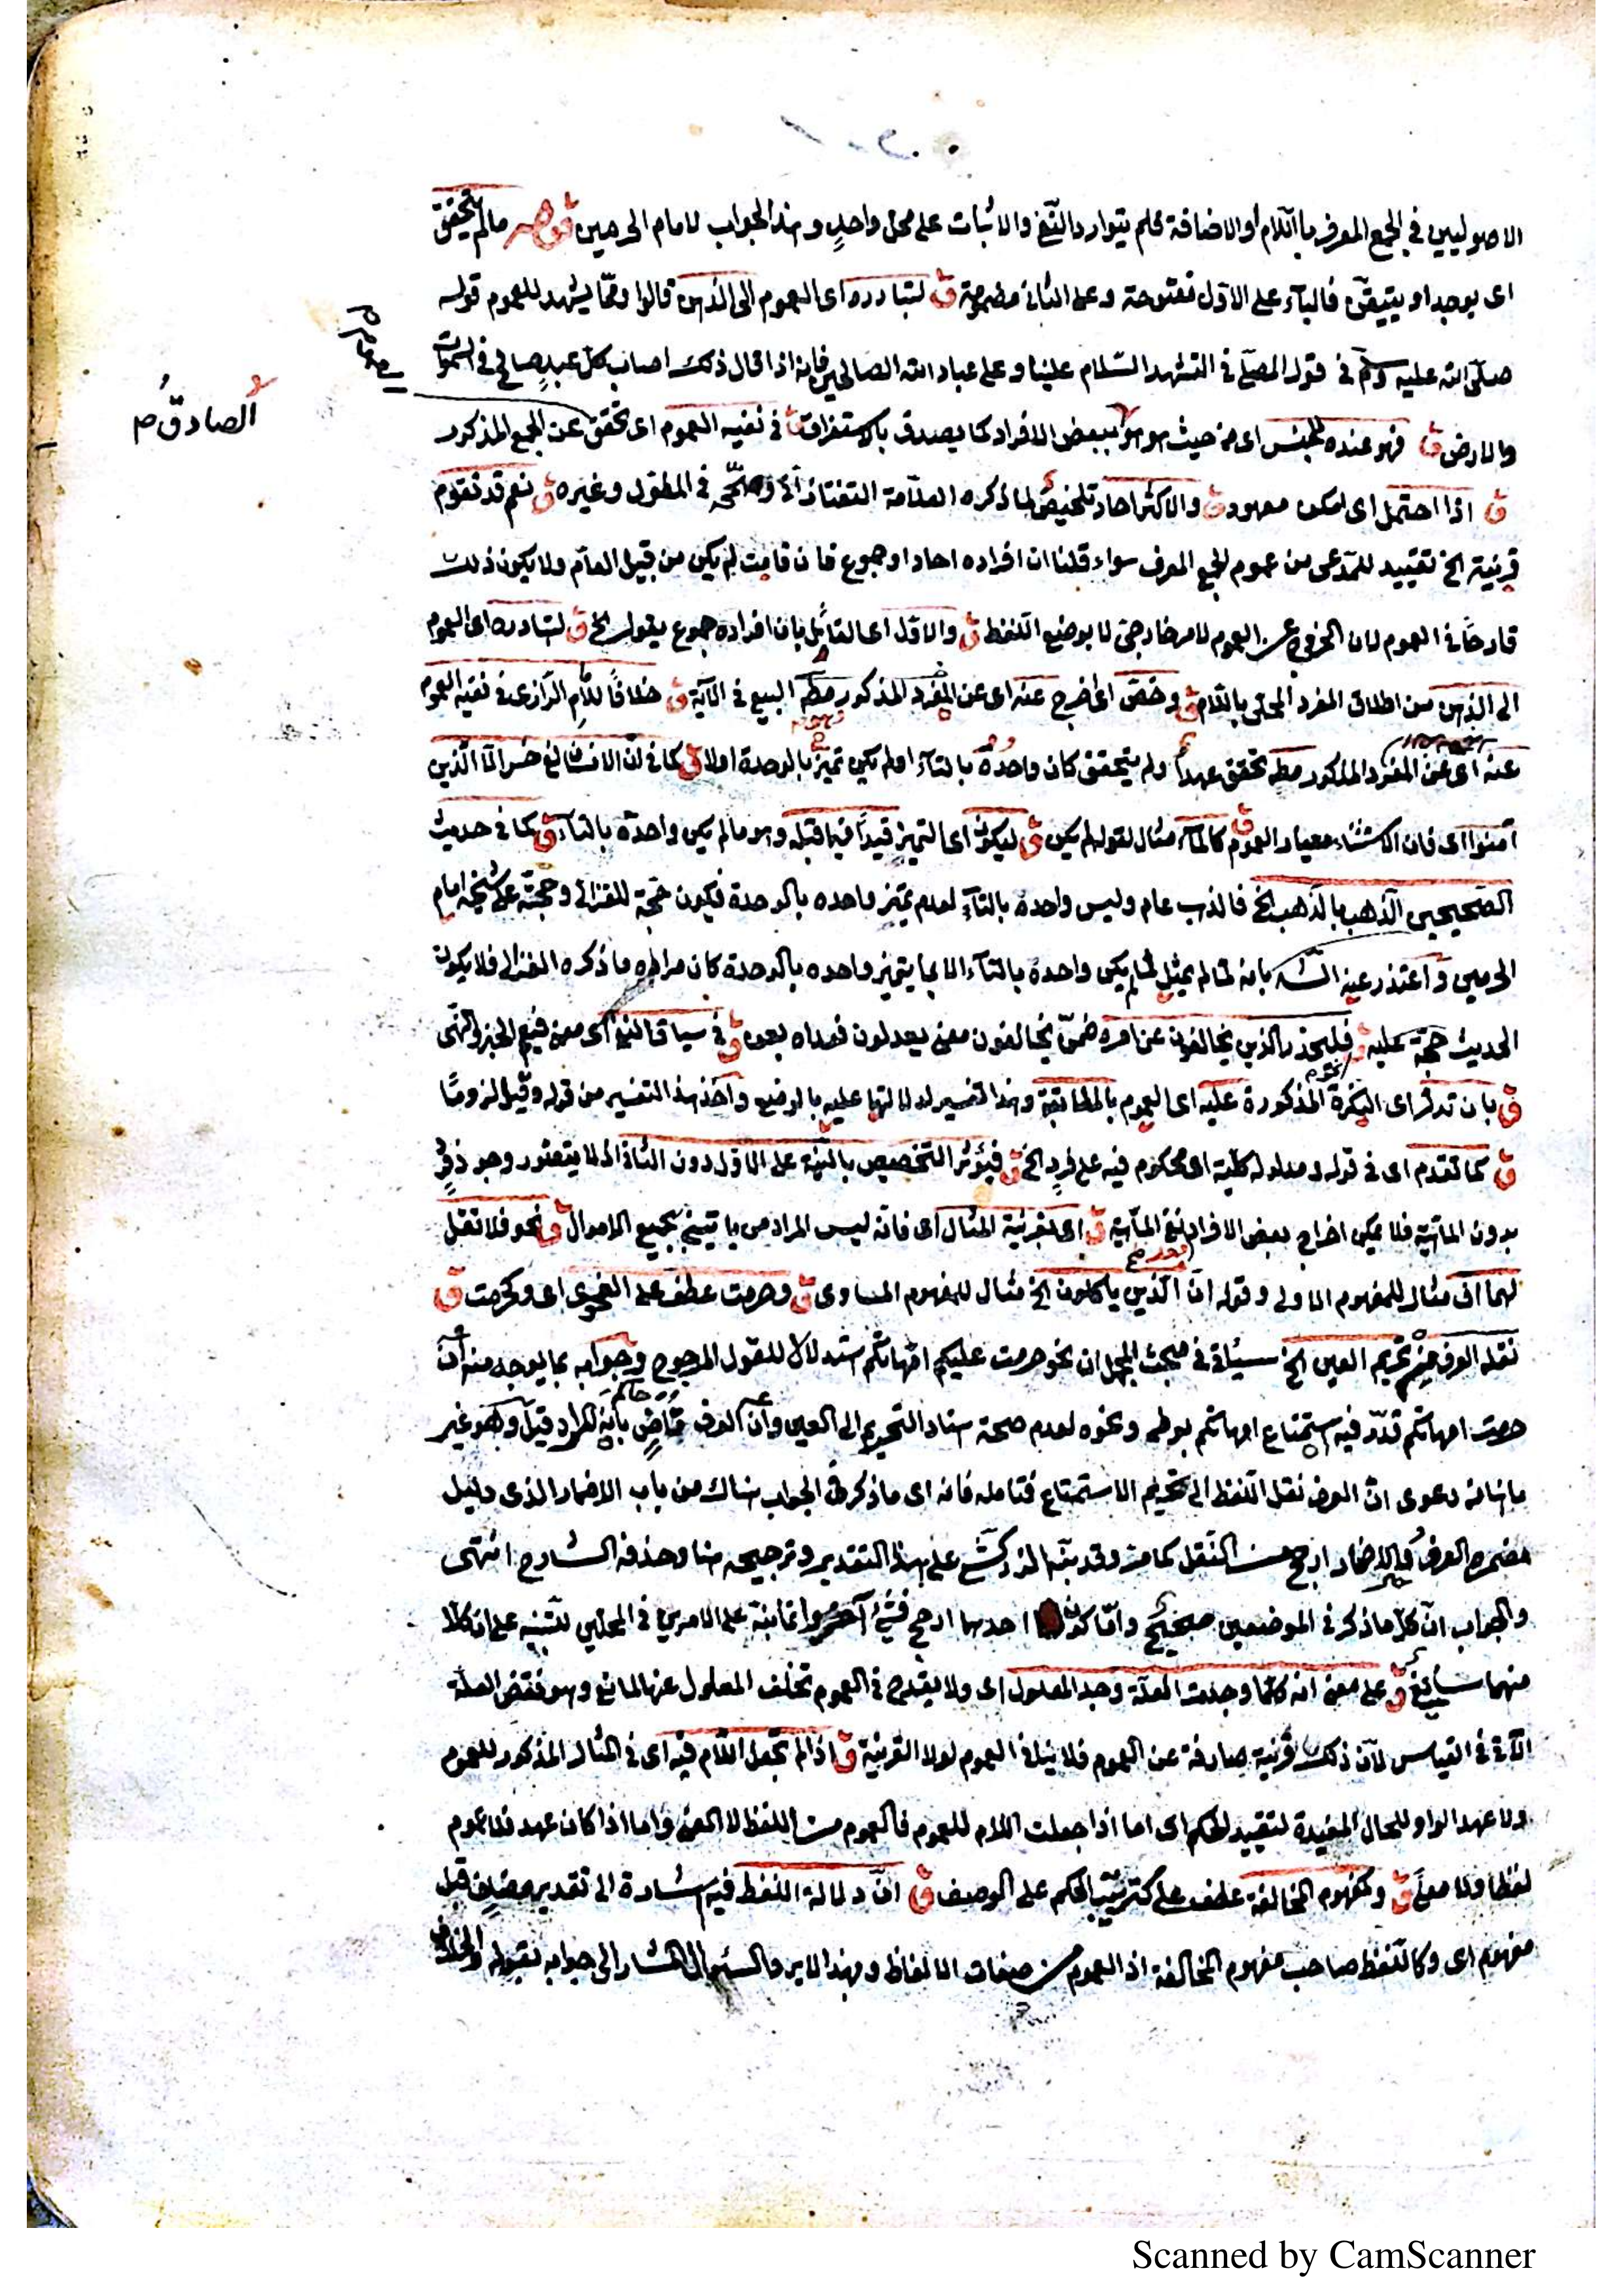 الاصوليين في الجمع المعرف باللام أو الاضافة فلم يتوارد النفي والاثبات على محل واحد وهذا الجواب لامام الحرمين قوله ما لم يتحقق
اى يوجد او يتيقن فالياء على الاول مفتوحة وعلى الثانى مضمومة ق لتبادره اى العموم الى الذهن قالوا ومما يشهد للعموم قوله
صلى الله عليه وسلم في قول المصلي في التشهد السلام علينا وعلى عباد الله الصالحين فانه اذا قال ذلك اصاب كل عبد صالح في السموات
والارض ق فهو عنده للجنس اى من حيث هو هو ببعض الافراد كما يصدق بالاستغراق ق في نفيه العموم اى تحقق عن الجمع المذكور
الصادق ص
ق اذا احتمل اى امكن معهود ق والاكثر احاد تلخيص لما ذكره العلامة التفتازانى وصححه في المطول وغيره ق نعم قد تقوم
قرينة الخ تقييد للمدعى من عموم الجمع المعرف سواء قلنا ان افراده احاد او جموع فان قامت لم يكن من قبيل العام ولا يكون ذلك
قادحا في العموم لان الخروج عن العموم لامر خارجى لا بوضع اللفظ ق والاول اى القائل بان افراده جموع يقول الخ ق لتبادره اى العموم
الى الذهن من اطلاق المفرد المحلى باللام ق وخص اى اخرج عنه اى عن المفرد المذكور البيع في الآية ق خلافا للامام الرازى في نفيه العموم
عنه اى عن المفرد المذكور تحقق عهد أو لم يتحقق كان واحده بالتاء او لم يكن تميز بالوحدة اولا ق كما في ان الانسان لفى خسر الا الذين
آمنوا اى فان الاستثناء معيار العموم ق كالماء مثال لقوله لم يكن ق ليكون اى التميز قيدا فيما قبله وهو ما لم يكن واحده بالتاء ق كما في حديث
الصحيحين الذهب بالذهب الخ فالذهب عام وليس واحده بالتاء لعدم تميز واحده بالوحدة فيكون حجة للغزالى وحجة على شيخه امام
الحرمين واعتذر عنه بانه لما لم يمثل لما لم يكن واحده بالتاء الا بما يتميز واحده بالوحدة كان مراده ما ذكره الغزالى فلا يكون
الحديث حجة عليه ق فليحذر الذين يخالفون عن امره ضمن يخالفون معنى يعدلون فعداه بعن ق في سياق النفى اى معنى فيعم الخبر والنهى
ق بان تدل اى النكرة المذكورة عليه اى العموم بالمطابقة وهذا تفسير لدلالتها عليه بالوضع واخذ هذا التفسير من قوله وقيل لزوما
ق كما تقدم اى في قوله ومدلوله كلية اى محكوم فيه على فرد الخ ق فيؤثر التخصيص بالنية على الاول دون الثانى اذ لا يتصور وجود فرد
بدون الماهية فلا يمكن اخراج بعض الافراد بنفى الماهية ق اى بقرينة المثال اى فانه ليس المراد من يأتينى بجميع الاموال ق نحو فلا تقل
لهما اف مثال للمفهوم الاولى وقوله ان الذين يأكلون الخ مثال للمفهوم المساوى ق وحرمت عطف على الفحوى اى وكحرمت ق
نقله العرف من تحريم العين الخ في مبحث المجمل ان نحو حرمت عليكم امهاتكم استدلالا للقول المرجوح وجوابه بما يوجد منه أن
حرمت امهاتكم قدر فيه استمتاع امهاتكم بوطء ونحوه لعدم صحة اسناد التحريم الى العين وأن العرف قاض بانه المراد قيل وهو غير
ما هنا من دعوى ان العرف نقل اللفظ الى تحريم الاستمتاع فتأمله فانه اى ما ذكره في الجواب هناك من باب الاضمار الذى دليل
مضمره العرف والاضمار ارجح من النقل كما مر وقد نبه الزركشي على هذا التقدير وترجيحه هنا وحذفه الشارح انتهى
والجواب ان كل ما ذكر في الموضعين صحيح وأما كون احدهما ارجح فشيء آخر وانما نبه على الامرين في المحلين للتنبيه على ان كلا
منهما سائغ ق على معنى انه كلما وجدت العلة وجد المعلول اى ولا يقدح في العموم تخلف المعلول عنها لمانع وهو نقض العلة
الآتى في القياس لان ذلك قرينة صارفة عن العموم فلا ينافى العموم لولا القرينة ق اذا لم تجعل اللام فيه اى في المثال المذكور للعموم
ولا عهد الواو للحال المفيدة لتقييد الحكم اى اما اذا جعلت اللام للعموم فالعموم من اللفظ لا المعنى واما اذا كان عهد فلا عموم
لفظا ولا معنى ق وكمفهوم المخالفة عطف على كترتيب الحكم على الوصف ق ان دلالة اللفظ فيه اشارة الى تقدير مضاف قبل
مفهوم اى وكاللفظ صاحب مفهوم المخالفة اذ العموم من صفات الالفاظ وبهذا لا يرد السؤال المشار الى جوابه بقوله والخلاف